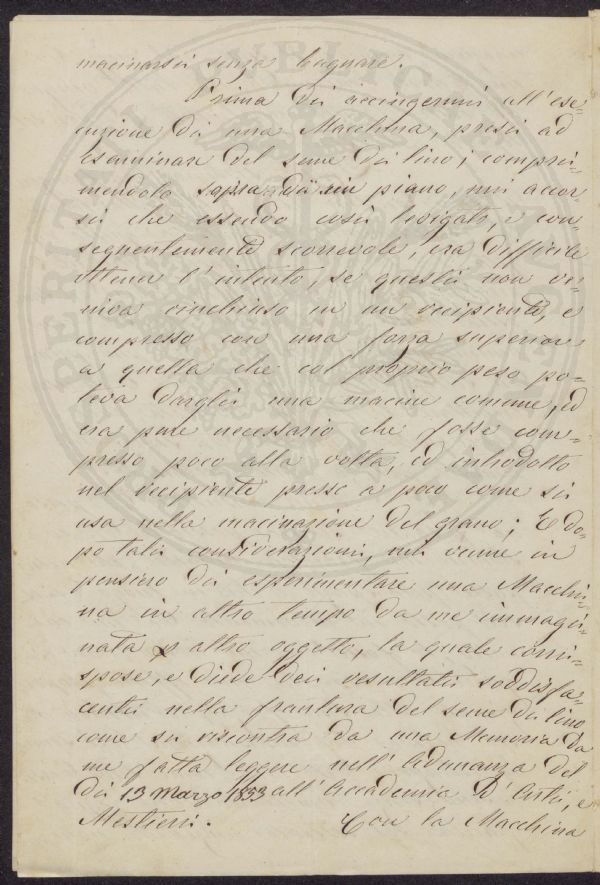 macinarsi senza bagnare.
Prima di accingermi all'ese=
cuzione di una Macchina, presi ad
esaminare del seme di lino; compri=
mendolo sopra di un piano, mi accor=
si che essendo così levigato, e con=
seguentemente scorrevole, era difficile
ottener l'intento, se questi non ve=
niva rinchiuso in un recipiente, e
compresso con una forza superiore
a quella che col proprio peso po=
teva dargli una macine comune, ed
era pure necessario che fosse com=
presso poco alla volta, ed introdotto
nel recipiente presso a poco come si
usa nella macinazione del grano; E do=
po tali considerazioni, mi venne in
pensiero di esperimentare una Macchi=
na in altro tempo da me immagi=
nata p altro oggetto, la quale corri=
spose, e diede dei resultati soddisfa=
centi nella frantura del seme di lino
come si riscontra da una Memoria da
me fatta leggere nell'Adunanza del
dì 13 Marzo 1853 all'Accademia d'Arti, e
Mestieri. Con la Macchina